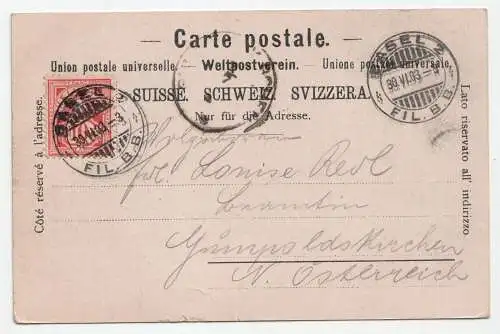 Carte postale.
Union postale universelle. — Weltpostverein. — Unione postale universale.
SUISSE. SCHWEIZ. SVIZZERA.
Nur für die Adresse.
Côté réservé à l'adresse.
Lato riservato all' indirizzo.
BASEL 2
30.VI.93.-3
FIL. B.B.
BASEL 2
30.VI.93.-3
FIL. B.B.
Wohlgeboren
Louise Redl
Beamtin
Gumpoldskirchen
N. Österreich